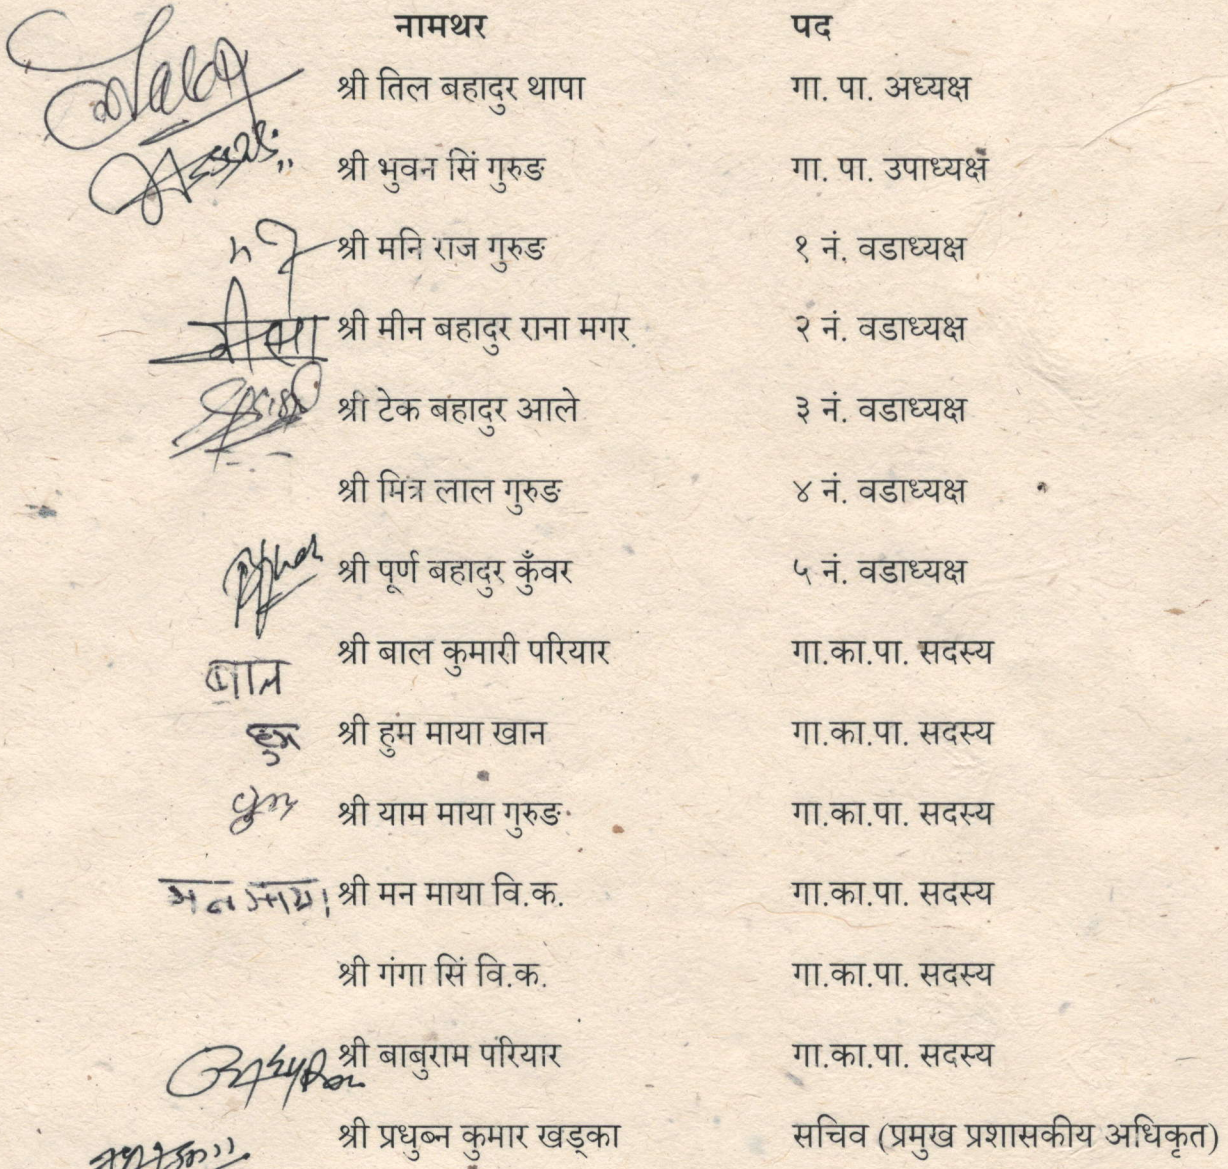 नामथर पद
श्री तिल बहादुर थापा गा. पा. अध्यक्ष
श्री भुवन सिं गुरुङ गा. पा. उपाध्यक्ष
श्री मनि राज गुरुङ १ नं. वडाध्यक्ष
श्री मीन बहादुर राना मगर २ नं. वडाध्यक्ष
श्री टेक बहादुर आले ३ नं. वडाध्यक्ष
श्री मित्र लाल गुरुङ ४ नं. वडाध्यक्ष
श्री पूर्ण बहादुर कुँवर ५ नं. वडाध्यक्ष
श्री बाल कुमारी परियार गा.का.पा. सदस्य
बाल
हुम श्री हुम माया खान गा.का.पा. सदस्य
श्री याम माया गुरुङ गा.का.पा. सदस्य
मन माया श्री मन माया वि.क. गा.का.पा. सदस्य
श्री गंगा सिं वि.क. गा.का.पा. सदस्य
श्री बाबुराम परियार गा.का.पा. सदस्य
श्री प्रधुब्न कुमार खड्का सचिव (प्रमुख प्रशासकीय अधिकृत)